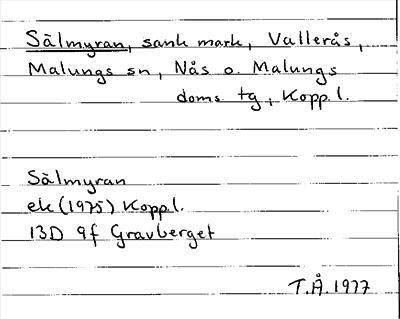 Sälmyran, sank mark, Vallerås,
Malungs sn, Nås o. Malungs
doms tg, Kopp.l.
Sälmyran
ek (1975) Kopp.l.
13D 9f Gravberget
T.Å. 1977